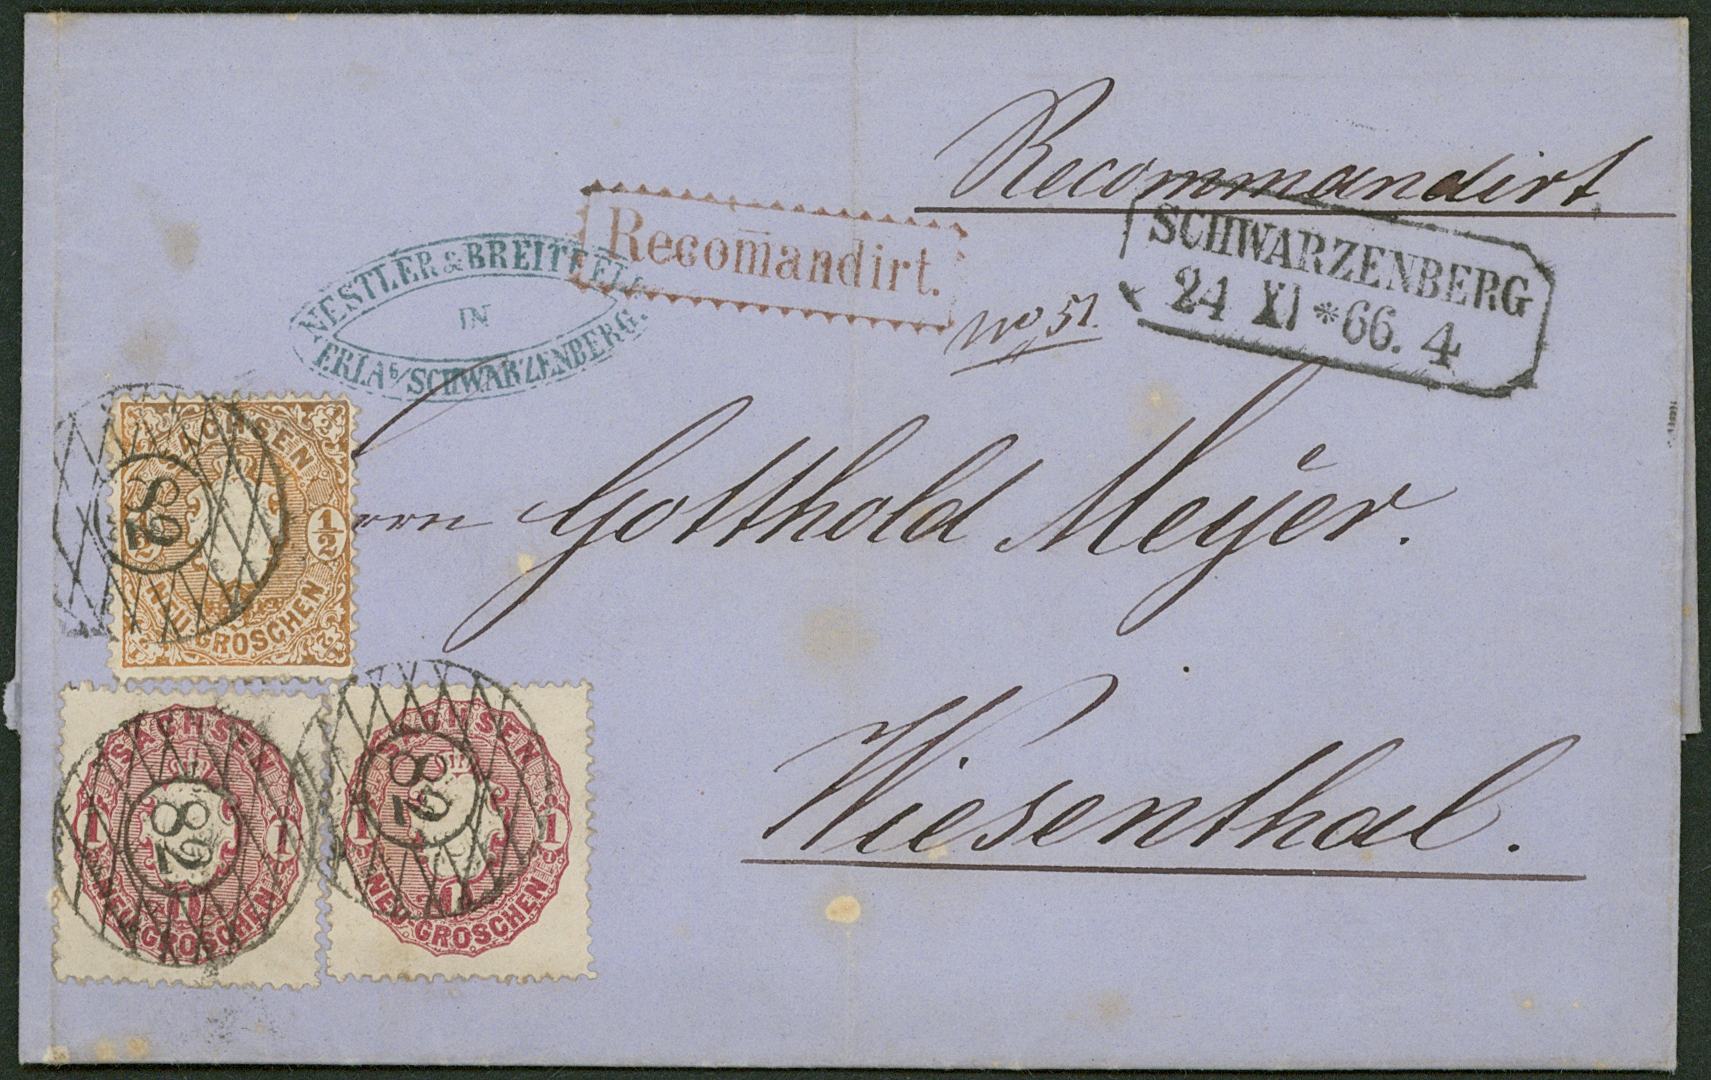 Recommandirt
Recom̄andirt.
NESTLER & BREITFELD
IN
ERLA b/ SCHWARZENBERG.
SCHWARZENBERG
24 XI * 66. 4
No 51.
Herrn Gotthold Meÿer.
Wiesenthal.
SACHSEN
82
1/2
1/2
NEU-GROSCHEN
SACHSEN
1
82
1
NEU-GROSCHEN
SACHSEN
1
82
1
NEU-GROSCHEN